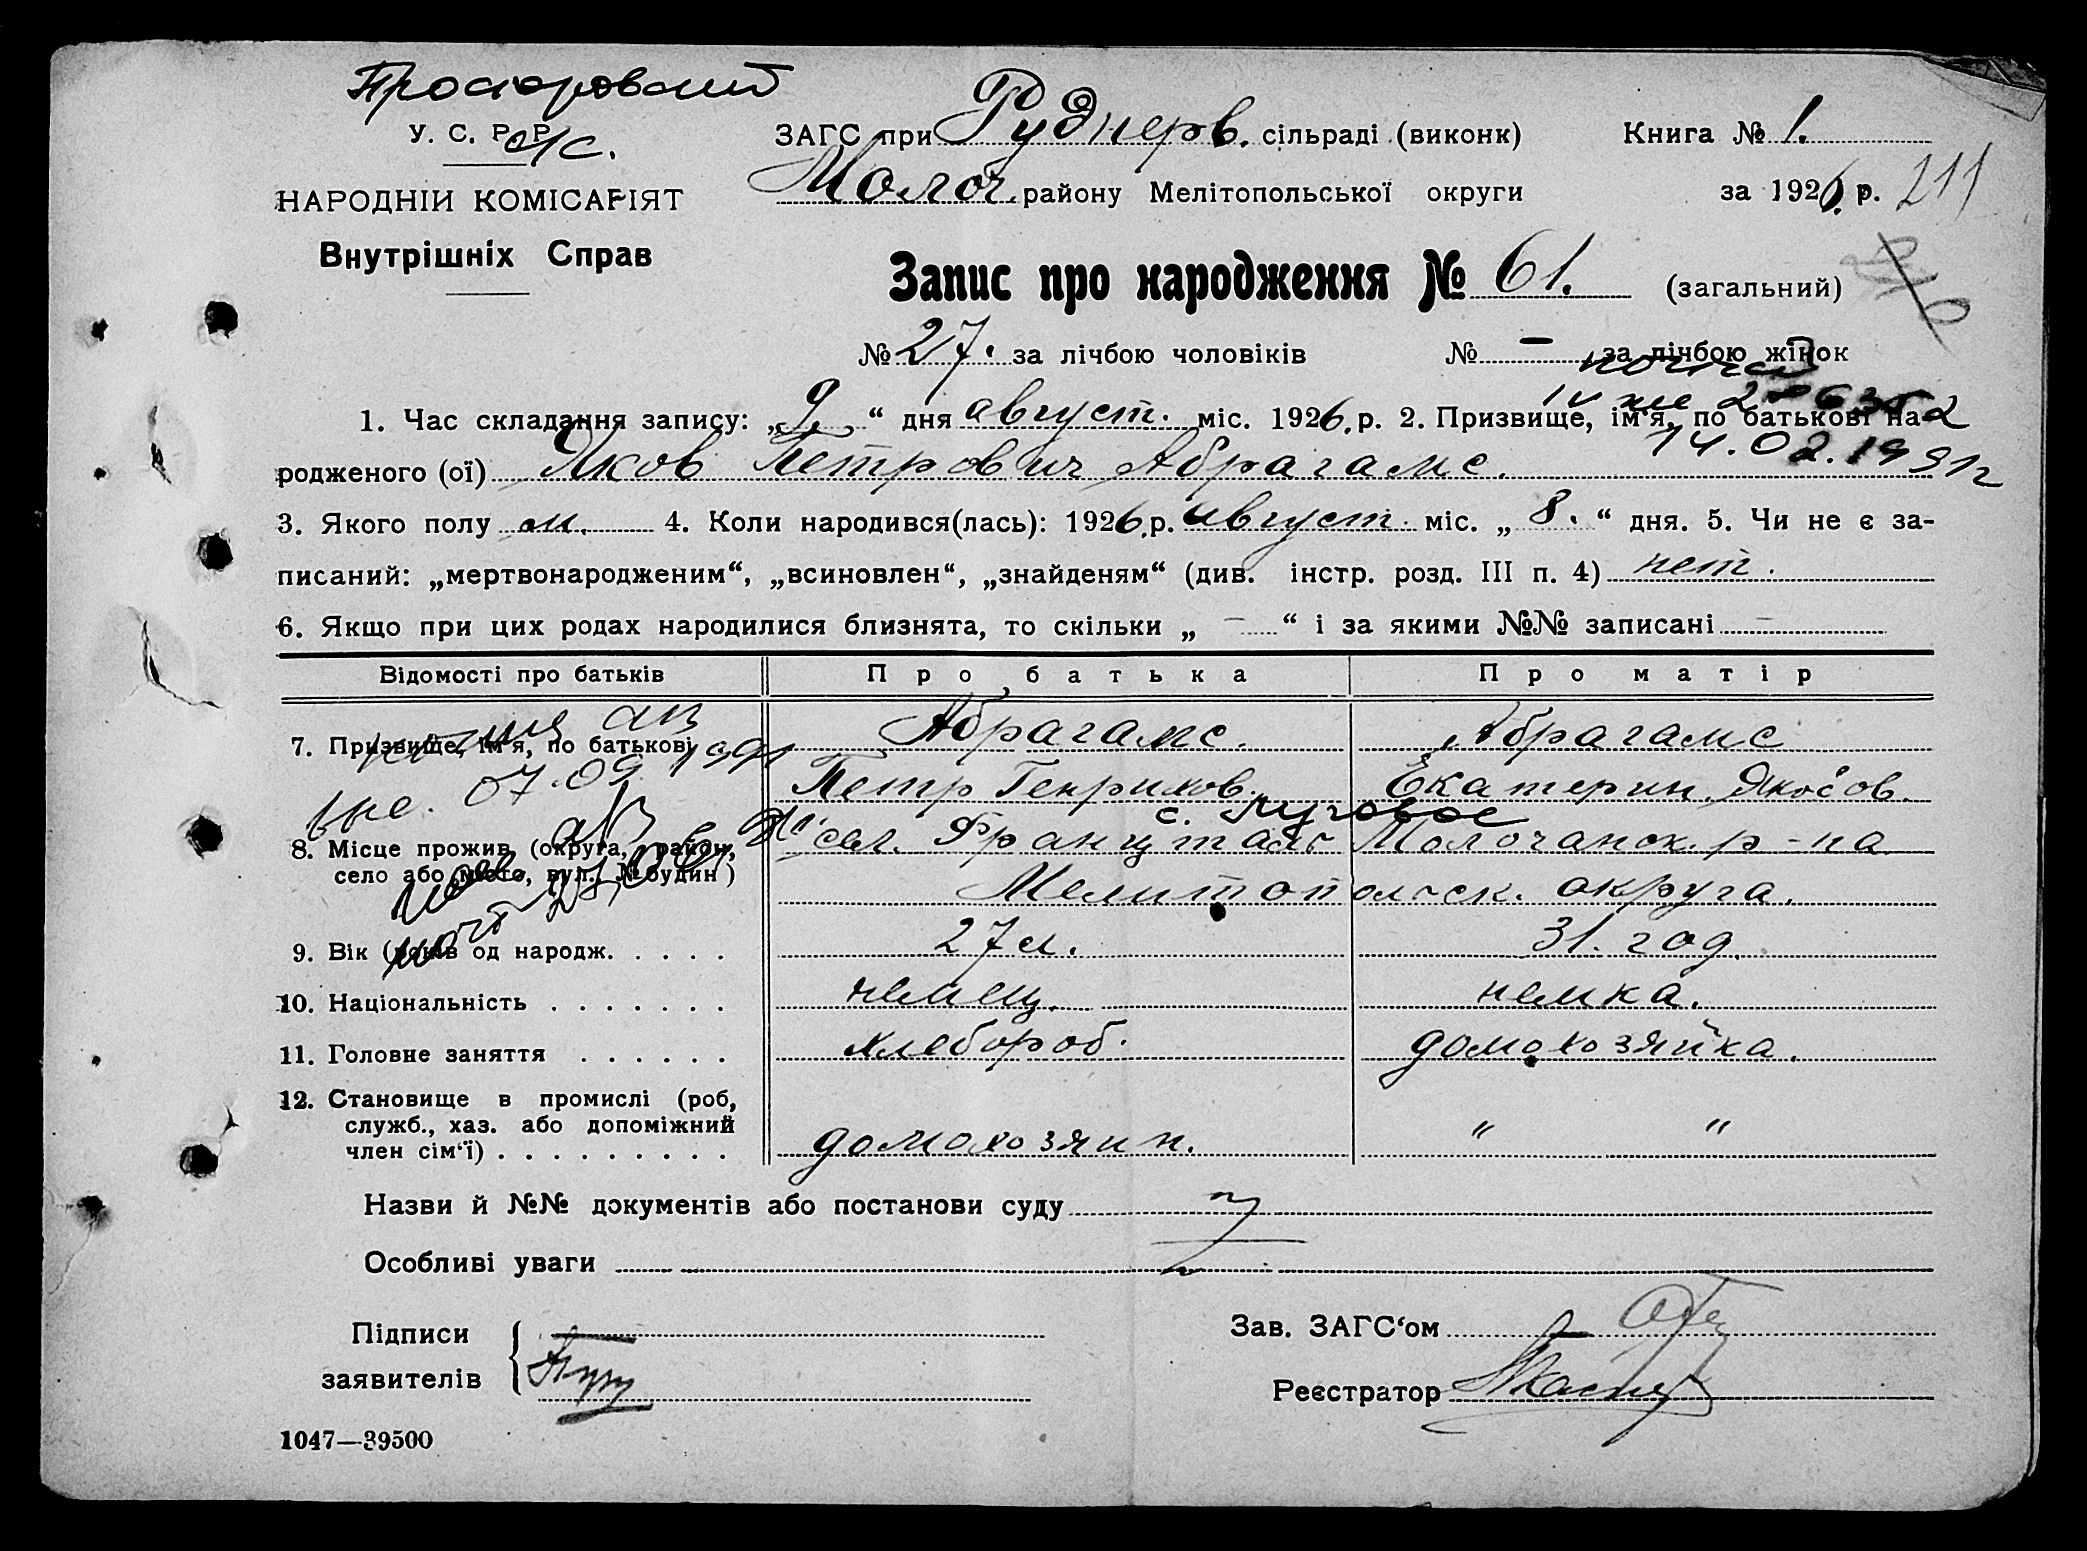 Просторовский
У. С. Р. Р. с/с.
ЗАГС при Руднерв. сільраді (виконк) Книга № 1.
НАРОДНІЙ КОМІСАРІЯТ
Молоч. району Мелітопольської округи за 1926, р. 211
Внутрішніх Справ
Запис про народження № 61. (загальний)
№ 27. за лічбою чоловіків № – за лічбою жінок
1. Час складання запису: „9.“ дня август. міс. 1926, р. 2. Призвище, ім'я, по батькові на-
14.02.1991г
родженого (ої) Яков Петрович Абрагамс.
3. Якого полу м. 4. Коли народився(лась): 1926, р. август. міс. „8.“ дня. 5. Чи не є за-
писаний: „мертвонародженим“, „всиновлен“, „знайденям“ (див. інстр. розд. III п. 4) нет.
6. Якщо при цих родах народилися близнята, то скільки „ – “ і за якими №№ записані –
Відомості про батьків Про батька Про матір
7. Призвище, ім'я, по батькові Абрагамс. Абрагамс
07.09.1991
Петр Генрихов. Екатерин. Яковов.
с. Луговое
8. Місце прожив. (округа, район, сел. Францталь Молочанск. р-на
село або місто, вул., № будин) Мелитопольск. округа.
9. Вік (років од народж. . . . . 27 л. 31. год.
10. Національність . . . . . . . немец. немка.
11. Головне заняття . . . . . . хлебороб. домохозяйка.
12. Становище в промислі (роб,
служб., хаз. або допоміжний
член сім'ї) . . . . . . . . . домохозяин. " "
Назви й №№ документів або постанови суду
Особливі уваги
Підписи Зав. ЗАГС'ом
заявителів Реєстратор
1047—39500